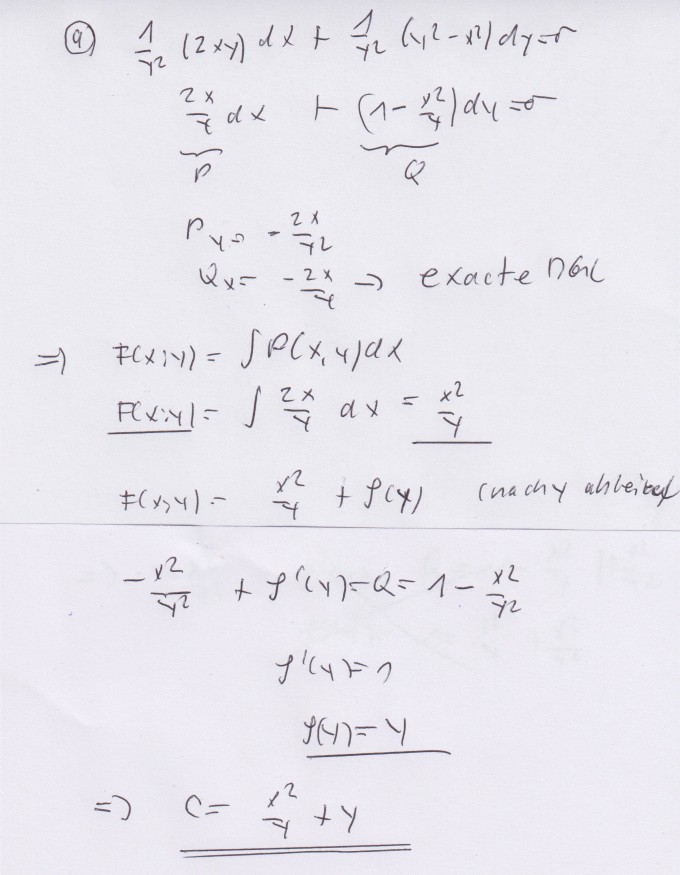 a) 1/y² (2xy) dx + 1/y² (y² - x²) dy = 0
2x/y dx + (1 - x²/y) dy = 0
P Q
P_y = - 2x/y²
Q_x = - 2x/y => exacte DGL
=> F(x;y) = ∫ P(x,y) dx
F(x;y) = ∫ 2x/y dx = x²/y
F(x,y) = x²/y + φ(y) (nach y ableiten)
- x²/y² + φ'(y) = Q = 1 - x²/y²
φ'(y) = 1
φ(y) = y
=> C = x²/y + y